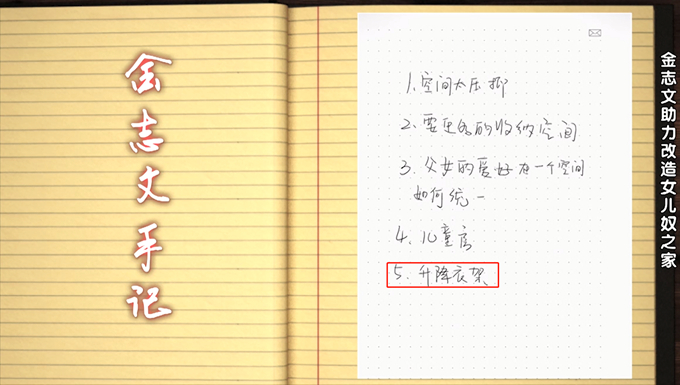 金志文手记
1. 空间太压抑
2. 要更多的收纳空间
3. 父女的爱好在一个空间
如何统一
4. 儿童房
5. 升降衣架
金志文助力改造女儿奴之家